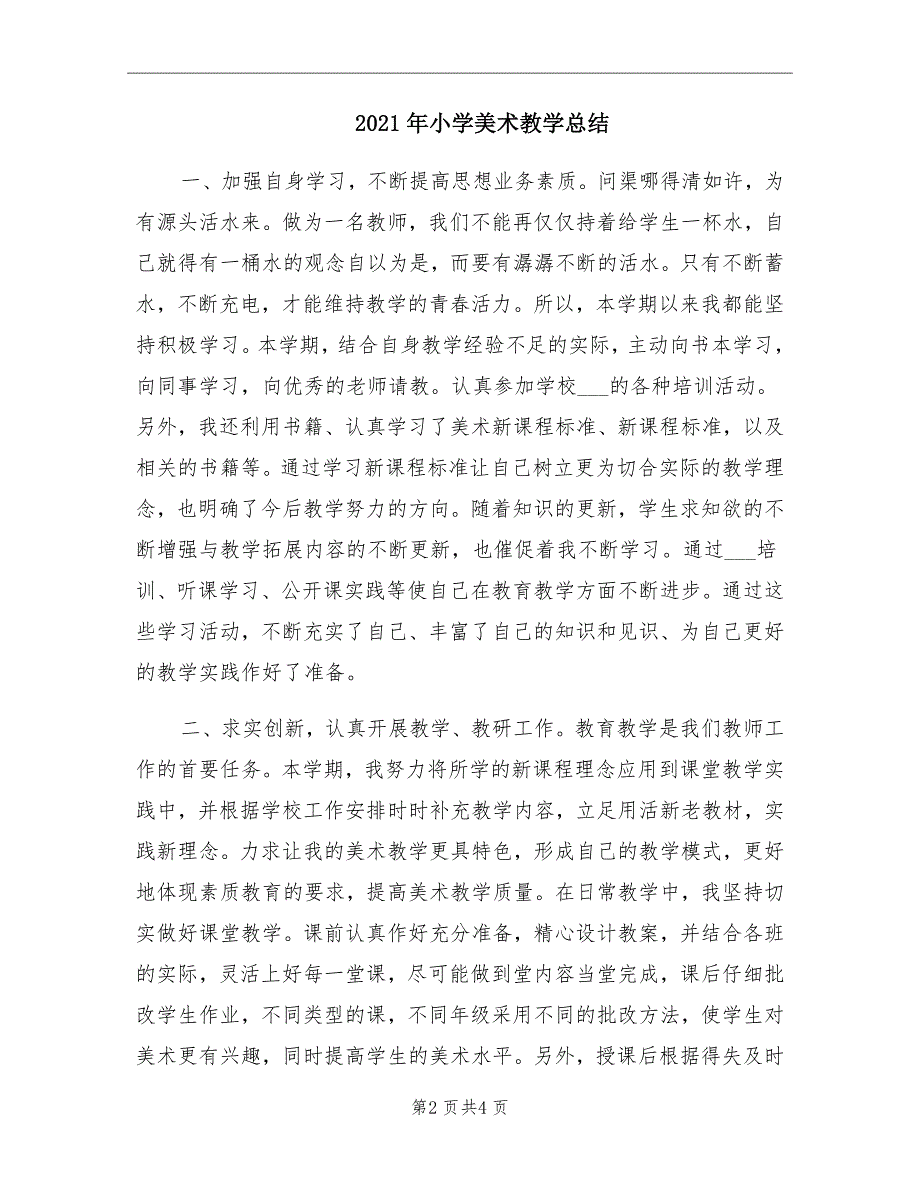 2021 年小学美术教学总结
一、加强自身学习，不断提高思想业务素质。问渠哪得清如许，为
有源头活水来。做为一名教师，我们不能再仅仅持着给学生一杯水，自
己就得有一桶水的观念自以为是，而要有潺潺不断的活水。只有不断蓄
水，不断充电，才能维持教学的青春活力。所以，本学期以来我都能坚
持积极学习。本学期，结合自身教学经验不足的实际，主动向书本学习，
向同事学习，向优秀的老师请教。认真参加学校___的各种培训活动。
另外，我还利用书籍、认真学习了美术新课程标准、新课程标准，以及
相关的书籍等。通过学习新课程标准让自己树立更为切合实际的教学理
念，也明确了今后教学努力的方向。随着知识的更新，学生求知欲的不
断增强与教学拓展内容的不断更新，也催促着我不断学习。通过___培
训、听课学习、公开课实践等使自己在教育教学方面不断进步。通过这
些学习活动，不断充实了自己、丰富了自己的知识和见识、为自己更好
的教学实践作好了准备。
二、求实创新，认真开展教学、教研工作。教育教学是我们教师工
作的首要任务。本学期，我努力将所学的新课程理念应用到课堂教学实
践中，并根据学校工作安排时时补充教学内容，立足用活新老教材，实
践新理念。力求让我的美术教学更具特色，形成自己的教学模式，更好
地体现素质教育的要求，提高美术教学质量。在日常教学中，我坚持切
实做好课堂教学。课前认真作好充分准备，精心设计教案，并结合各班
的实际，灵活上好每一堂课，尽可能做到堂内容当堂完成，课后仔细批
改学生作业，不同类型的课，不同年级采用不同的批改方法，使学生对
美术更有兴趣，同时提高学生的美术水平。另外，授课后根据得失及时
第2 页共4 页